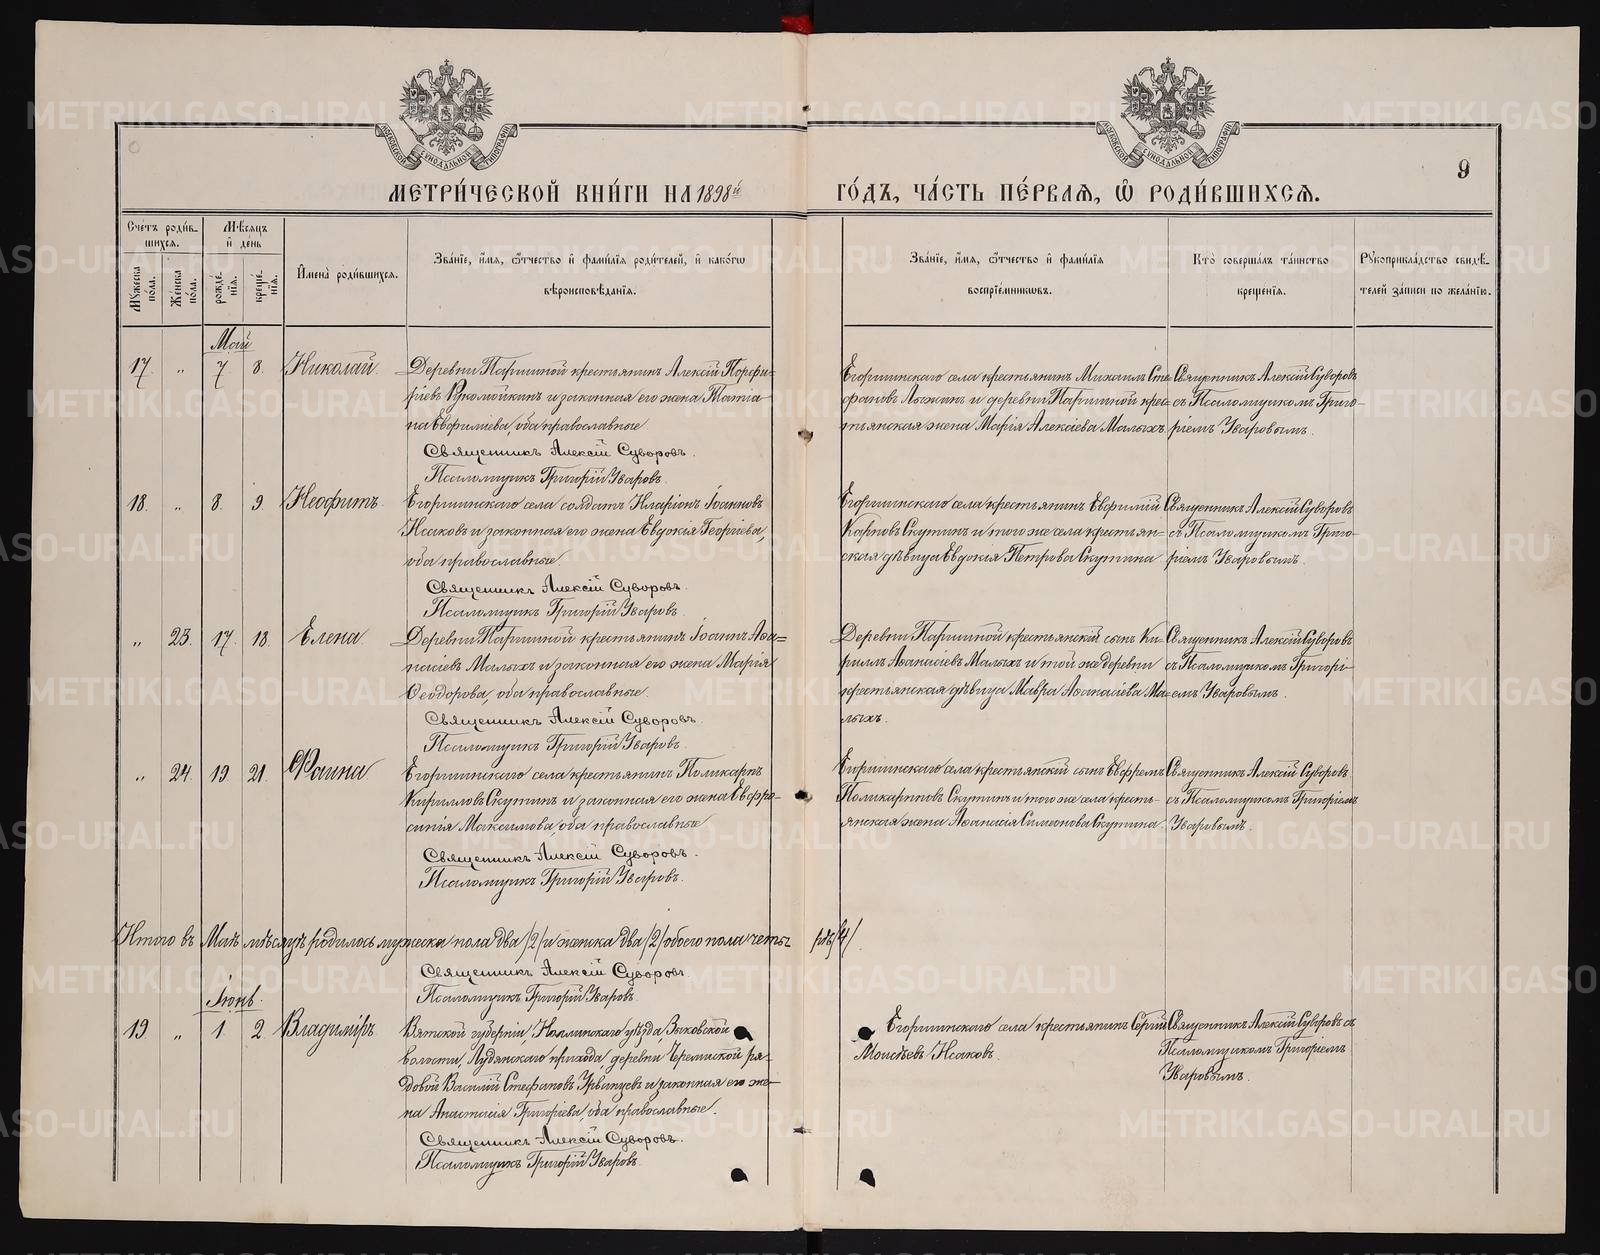 МОСКОВСКОЙ СУНОДАЛЬНОЙ ТИПОГРАФІИ
МОСКОВСКОЙ СУНОДАЛЬНОЙ ТИПОГРАФІИ
9
МЕТРИ́ЧЕСКОЙ КНИ́ГИ НА 1898й
ГО́ДЪ, ЧА́СТЬ ПЕ́РВАѦ, Ѽ РОДИ́ВШИХСѦ.
Сче́тъ роди́в-
шихсѧ.
Мѣ́сѧцъ
и҆ де́нь
Мꙋ́жеска по́ла.
Же́нска по́ла.
рожде́-нїѧ.
креще́-нїѧ.
И҆мена̀ роди́вшихсѧ.
Зва́нїе, и҆́мѧ, ѻ҆́тчество и҆ фами́лїѧ роди́телей, и҆ како́гѡ
вѣроисповѣ́данїѧ.
Зва́нїе, и҆́мѧ, ѻ҆́тчество и҆ фами́лїѧ
воспрїе́мникѡвъ.
Кто̀ соверша́лъ та́инство
креще́нїѧ.
Рꙋкоприкла́дство свидѣ́-
телей за́писи по жела́нїю.
Май
17. " 7 8. Николай.
Деревни Паршиной крестьянинъ Алексій Порфи=
ріевъ Рукомойкинъ и законная его жена Татіа-
на Евфиміева, оба православные.
Священникъ Алексій Суворовъ.
Псаломщикъ Григорій Уваровъ.
Егоршинскаго села крестьянинъ Михаилъ Сте-
фановъ Лыжинъ и деревни Паршиной крес-
тьянская жена Марія Алексіева Малыхъ.
Священникъ Алексій Суворовъ
съ Псаломщикомъ Григо-
ріемъ Уваровымъ.
18. " 8. 9. Неофитъ.
Егоршинскаго села солдатъ Иларіонъ Іоанновъ
Исаковъ и законная его жена Евдокія Георгіева,
оба православные.
Священникъ Алексій Суворовъ.
Псаломщикъ Григорій Уваровъ.
Егоршинскаго села крестьянинъ Евфимій
Карповъ Скутинъ и того же села крестьян=
ская дѣвица Евдокія Петрова Скутина
Священникъ Алексій Суворовъ
съ Псаломщикомъ Григо-
ріемъ Уваровымъ.
" 23. 17. 18. Елена
Деревни Паршиной крестьянинъ Іоаннъ Аѳа=
насіевъ Малыхъ и законная его жена Марія
Ѳеодорова, оба православные.
Священникъ Алексій Суворовъ.
Псаломщикъ Григорій Уваровъ.
Деревни Паршиной крестьянскій сынъ Ки-
риллъ Аѳанасіевъ Малыхъ и той же деревни
крестьянская дѣвица Мавра Аѳанасіева Ма-
лыхъ.
Священникъ Алексій Суворовъ
съ Псаломщикомъ Григорі-
емъ Уваровымъ.
" 24. 19. 21. Фаина
Егоршинскаго села крестьянинъ Поликарпъ
Кирилловъ Скутинъ и законная его жена Евфро-
синія Максимова, оба православные
Священникъ Алексій Суворовъ.
Псаломщикъ Григорій Уваровъ.
Егоршинскаго села крестьянскій сынъ Евфремъ
Поликарповъ Скутинъ и того же села кресть-
янская жена Аѳанасія Симеонова Скутина.
Священникъ Алексій Суворовъ
съ Псаломщикомъ Григоріемъ
Уваровымъ.
Итого въ Маѣ мѣсяцѣ родилось мужеска пола два /2/ и женска два /2/ обоего пола четы-
ре /4/.
Священникъ Алексій Суворовъ.
Псаломщикъ Григорій Уваровъ
Іюнь.
19. " 1 2 Владиміръ
Вятской губерніи, Нолинскаго уѣзда, Зыковской
волости, Лудянскаго прихода, деревни Черемиской ря-
довой Василій Стефановъ и законная его же-
на Анастасія Григоріева, оба православные.
Священникъ Алексій Суворовъ.
Псаломщикъ Григорій Уваровъ.
Егоршинскаго села крестьянинъ Сергій
Моисѣевъ Исаковъ.
Священникъ Алексій Суворовъ съ
Псаломщикомъ Григоріемъ
Уваровымъ.
METRIKI.GASO-URAL.RU